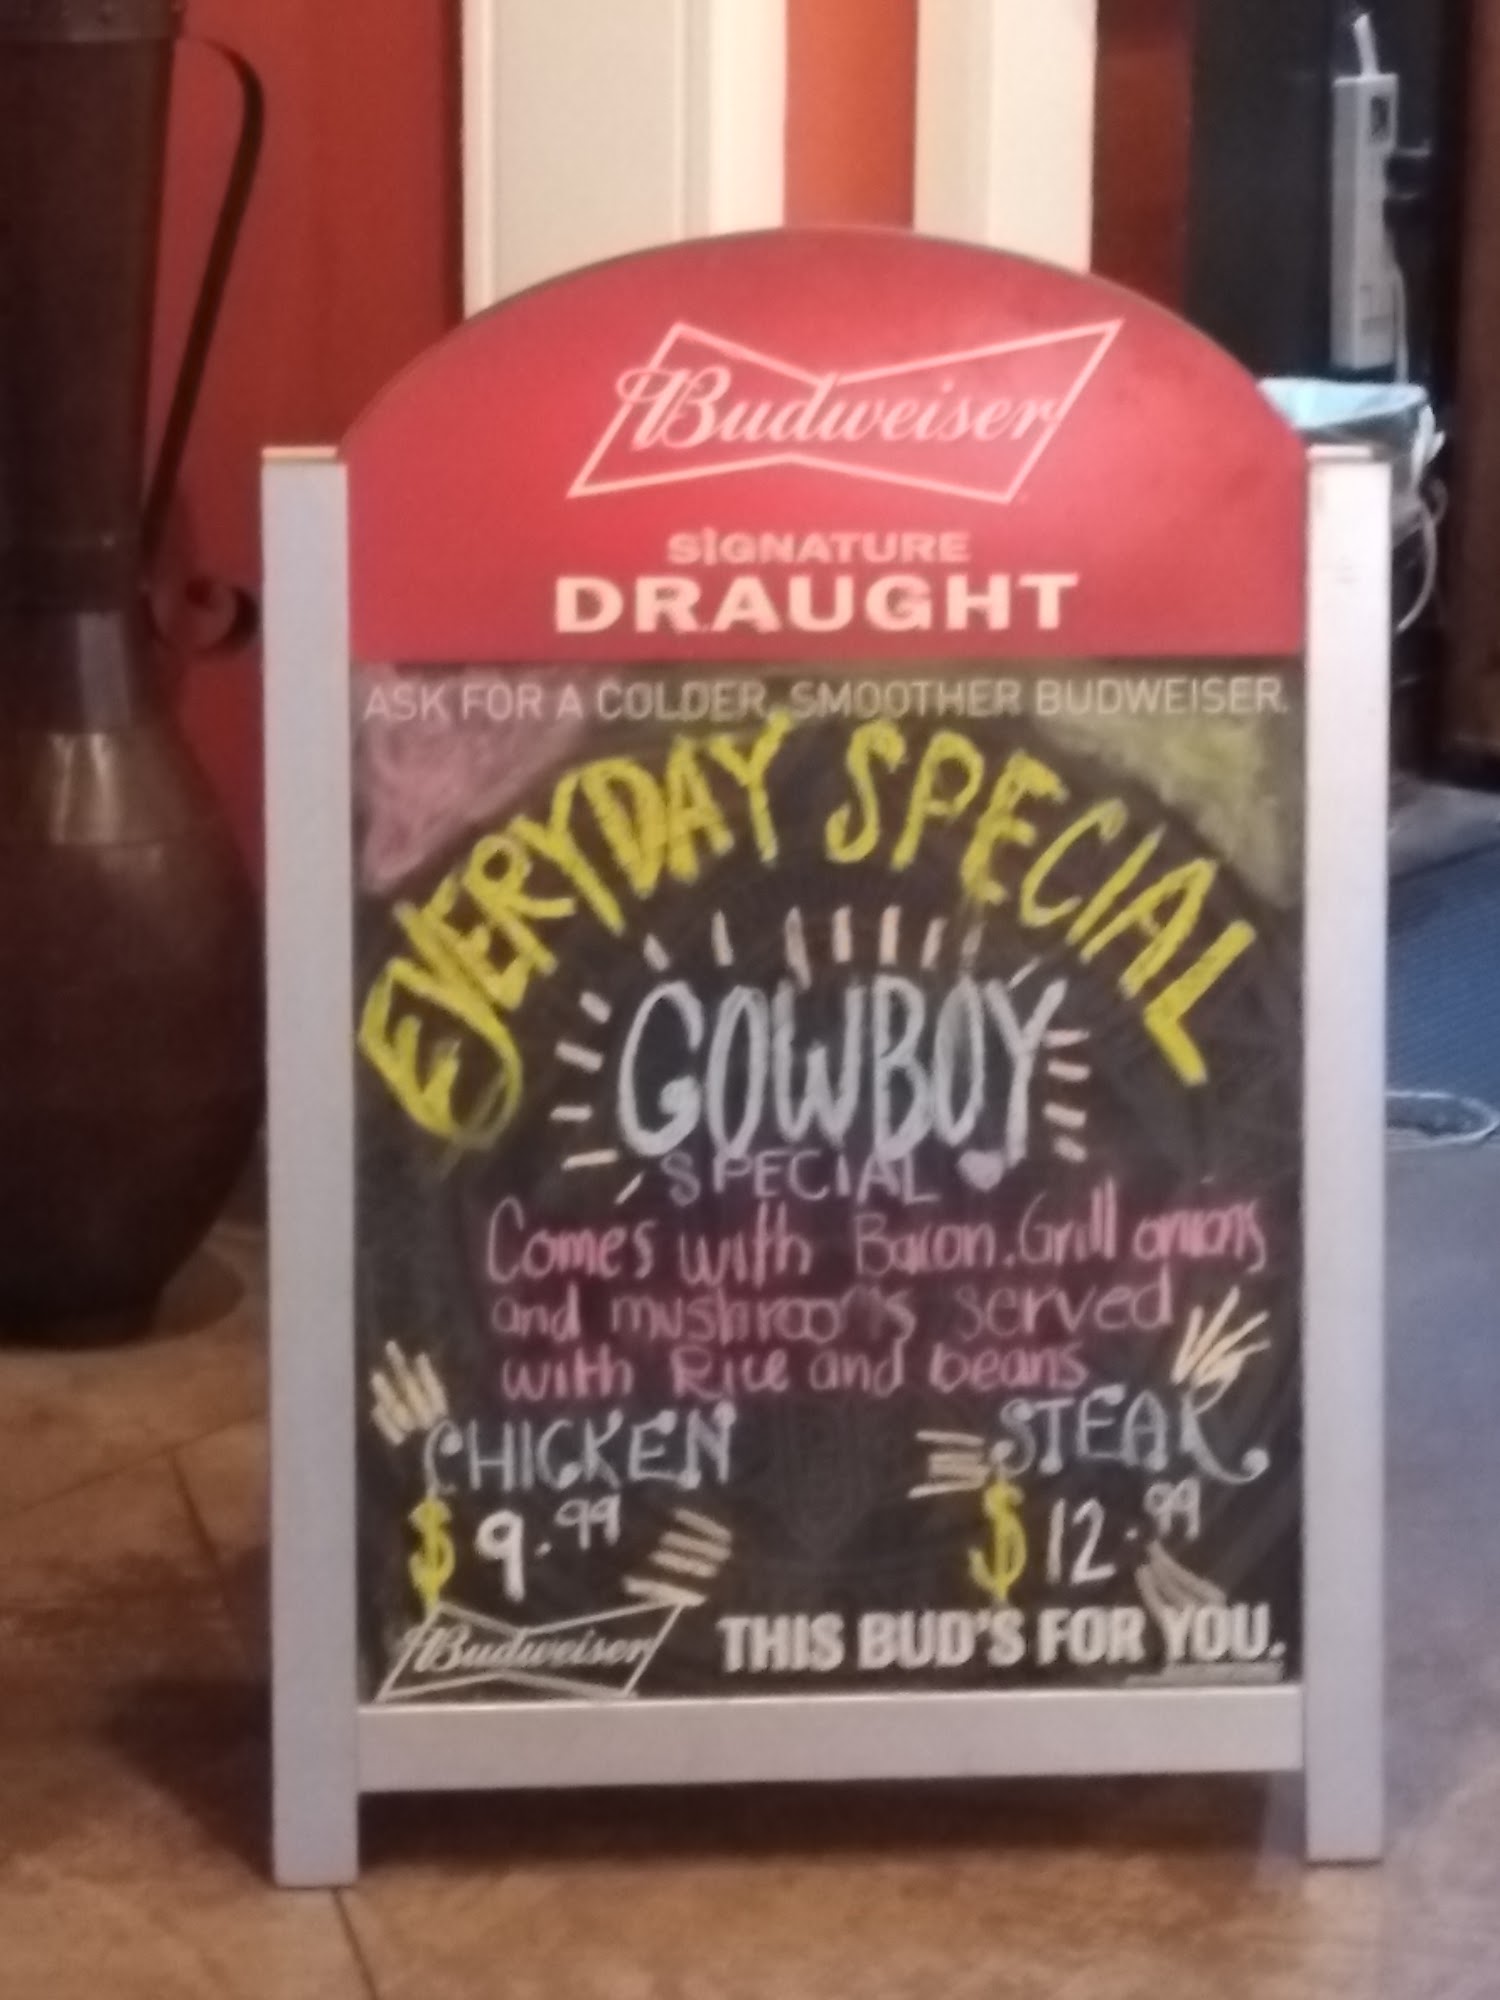 Budweiser
SIGNATURE
DRAUGHT
ASK FOR A COLDER, SMOOTHER BUDWEISER.
EVERYDAY SPECIAL
COWBOY
SPECIAL
Comes with Bacon. Grill onions
and mushrooms served
with Rice and beans
CHICKEN
$9.99
STEAK
$12.99
Budweiser
THIS BUD'S FOR YOU.